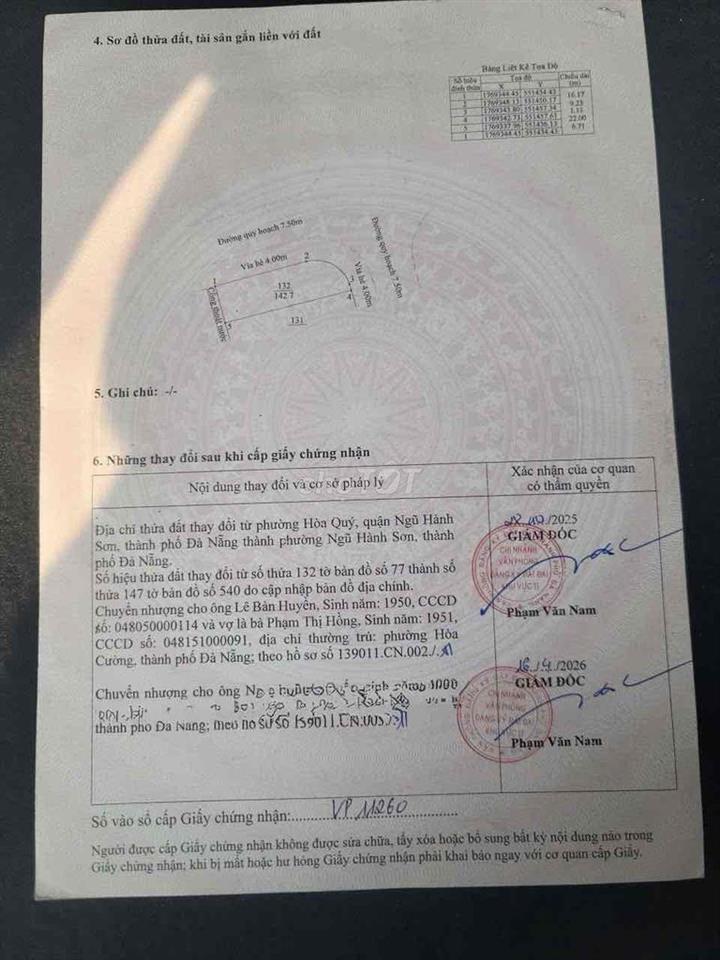 4. Sơ đồ thửa đất, tài sản gắn liền với đất
Bảng Liệt Kê Tọa Độ
Số hiệu đỉnh thửa Tọa độ Chiều dài (m)
X Y
1 1769344.45 551434.43
16.17
2 1769348.13 551450.17
9.23
3 1769343.80 551457.34
1.11
4 1769342.73 551457.61
22.00
5 1769337.96 551436.13
6.71
1 1769344.45 551434.43
Đường quy hoạch 7.50m
Đường quy hoạch 7.50m
Vỉa hè 4.00m
Vỉa hè 4.00m
1
2
3
4
5
132
142.7
131
Cống thoát nước
5. Ghi chú: -/-
6. Những thay đổi sau khi cấp giấy chứng nhận
Nội dung thay đổi và cơ sở pháp lý
Xác nhận của cơ quan
có thẩm quyền
Địa chỉ thửa đất thay đổi từ phường Hòa Quý, quận Ngũ Hành
Sơn, thành phố Đà Nẵng thành phường Ngũ Hành Sơn, thành
phố Đà Nẵng.
Số hiệu thửa đất thay đổi từ số thửa 132 tờ bản đồ số 77 thành số
thửa 147 tờ bản đồ số 540 do cập nhập bản đồ địa chính.
Chuyển nhượng cho ông Lê Bàn Huyền, Sinh năm: 1950, CCCD
số: 048050000114 và vợ là bà Phạm Thị Hồng, Sinh năm: 1951,
CCCD số: 048151000091, địa chỉ thường trú: phường Hòa
Cường, thành phố Đà Nẵng; theo hồ sơ số 139011.CN.002./.
/2025
GIÁM ĐỐC
CHI NHÁNH
VĂN PHÒNG
ĐĂNG KÝ ĐẤT ĐAI
KHU VỰC II
Phạm Văn Nam
Chuyển nhượng cho ông
thành phố Đà Nẵng; theo hồ sơ số 139011.CN.003./.
16/4/2026
GIÁM ĐỐC
CHI NHÁNH
VĂN PHÒNG
ĐĂNG KÝ ĐẤT ĐAI
KHU VỰC II
Phạm Văn Nam
Số vào sổ cấp Giấy chứng nhận: VP 11260
Người được cấp Giấy chứng nhận không được sửa chữa, tẩy xóa hoặc bổ sung bất kỳ nội dung nào trong
Giấy chứng nhận; khi bị mất hoặc hư hỏng Giấy chứng nhận phải khai báo ngay với cơ quan cấp Giấy.